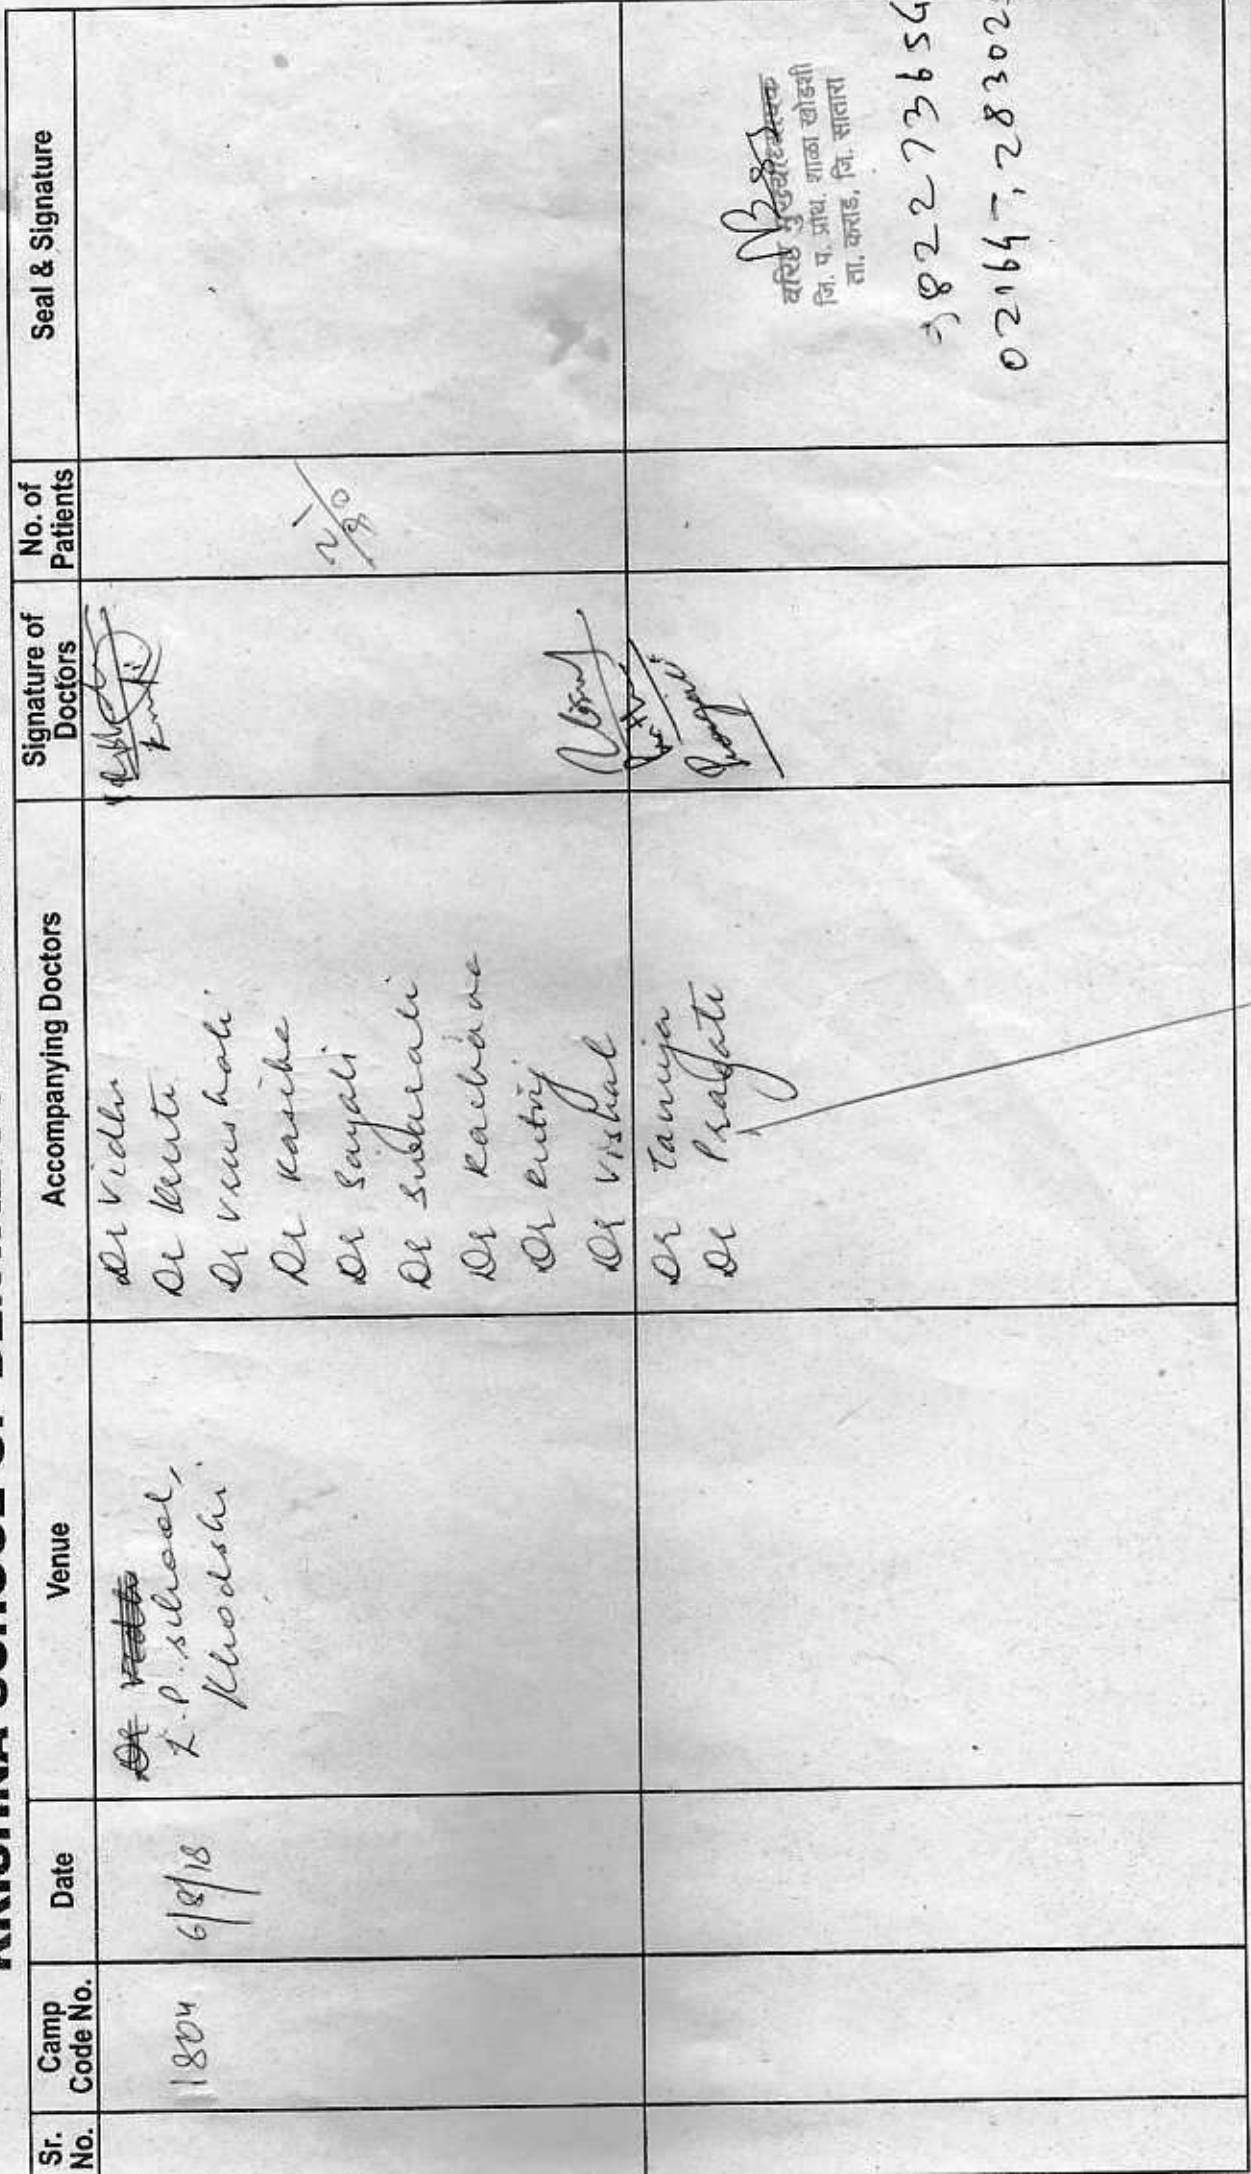 Sr. No.
Camp Code No.
Date
Venue
Accompanying Doctors
Signature of Doctors
No. of Patients
Seal & Signature
1804
6/8/18
Dr Vidhi
Z.P. school,
Khodshi
Dr Vidhi
Dr Kruti
Dr Vrushali
Dr Kasike
Dr Sayali
Dr
Dr Rachana
Dr Rutuj
Dr Vishal
Dr Tanuja
Dr Pragati
वरिष्ठ मुख्याध्यापक
जि. प. प्राथ. शाळा खोडशी
ता. कराड, जि. सातारा
982273654
02164-28302